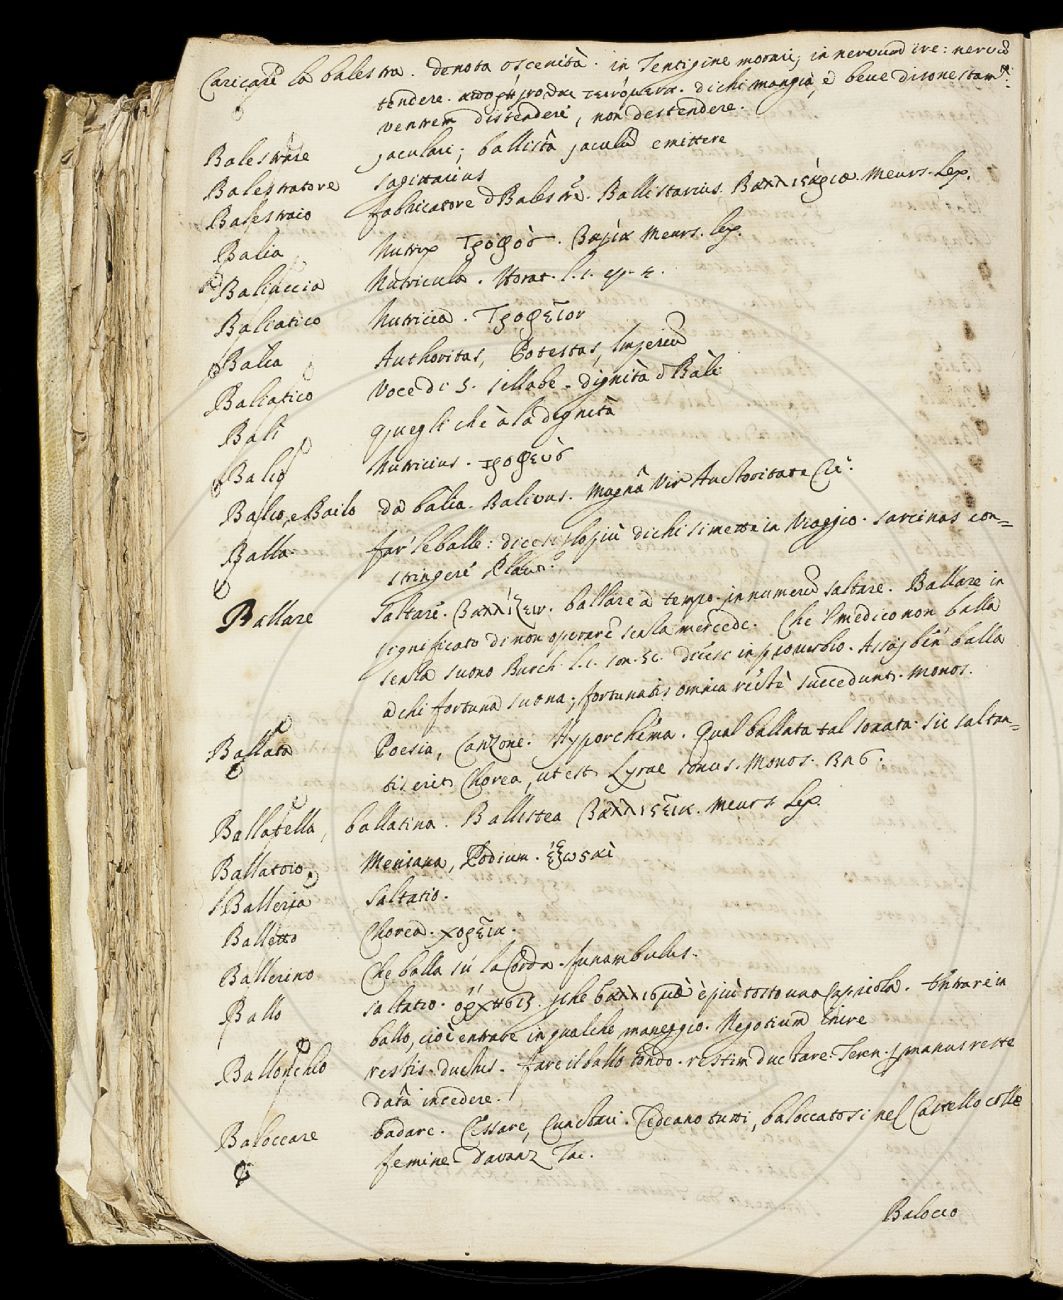 Caricare la balestra. denota oscenità. in Tentigine morari; in nervum ire: nervum
tendere. τεινόμενα. di chi mangia, e beve disonestamte:
ventrem distendere, non destendere.
Balestrare jaculari; ballistâ jaculum emittere
Balestratore sagittarius
Balestraio fabricatore d Balestre. Ballistarius. Βαλλιςάριος. Meurs. Lex.
Balia Nutrix τροφὸς. Βαΐα Meurs. Lex.
Baliaccia Nutricula. Horat. l. 1. ep. 4.
Baliatico Nutricia. Τροφεῖον
Balìa Authoritas, Potestas, Imperium
Baliatico Voce di 5. sillabe. dignità d Balì
Balì quegli chè à la dignità
Balio Nutricius. τροφεὺς
Balio, e Bailo da balia. Balivus. Magnâ Vir Auctoritate Cic:
Balla far' le balle: dicesi lo più di chi si mette in Viaggio. sarcinas con=
stringere Plaut:
Ballare Saltare. Βαλλίζειν. ballare à tempo. in numerum saltare. Ballare in
significato di non operare senza mercede. Che 'l medico non balla
senza suono Burch. l. 1. son. 51. dicesi in proverbio. Assaj ben balla
a chi fortuna suona; fortunatis omnia rectè succedunt. Monos.
Ballata Poesia, Canzone. Hyporchéma. Qual ballata tal sonata. Sic saltan=
tis erit Chorea, ut est Lyrae sonus. Monos. 136.
Ballatella, ballatina. Ballistea Βαλλιςεῖα. Meurs Lex.
Ballatoio Meniana, Podium.
Balleria Saltatio.
Balletto Chorea. χορεῖα.
Ballerino Che balla sù la Corda. funambulus.
Ballo saltatio. ὄρχησις. che βαλλισμὸς è più tosto una Capriola. Entrare in
ballo, cioè entrare in qualche maneggio. Negotium inire
Ballonchio restis ductus. fare il ballo tondo. restim ductare. Teren. manus reste
datâ incedere.
Baloccare badare. Cessare, Cunctari. Cedeano tutti, baloccatosi nel Castello colle
femine Davanz. Tac.
Balocco